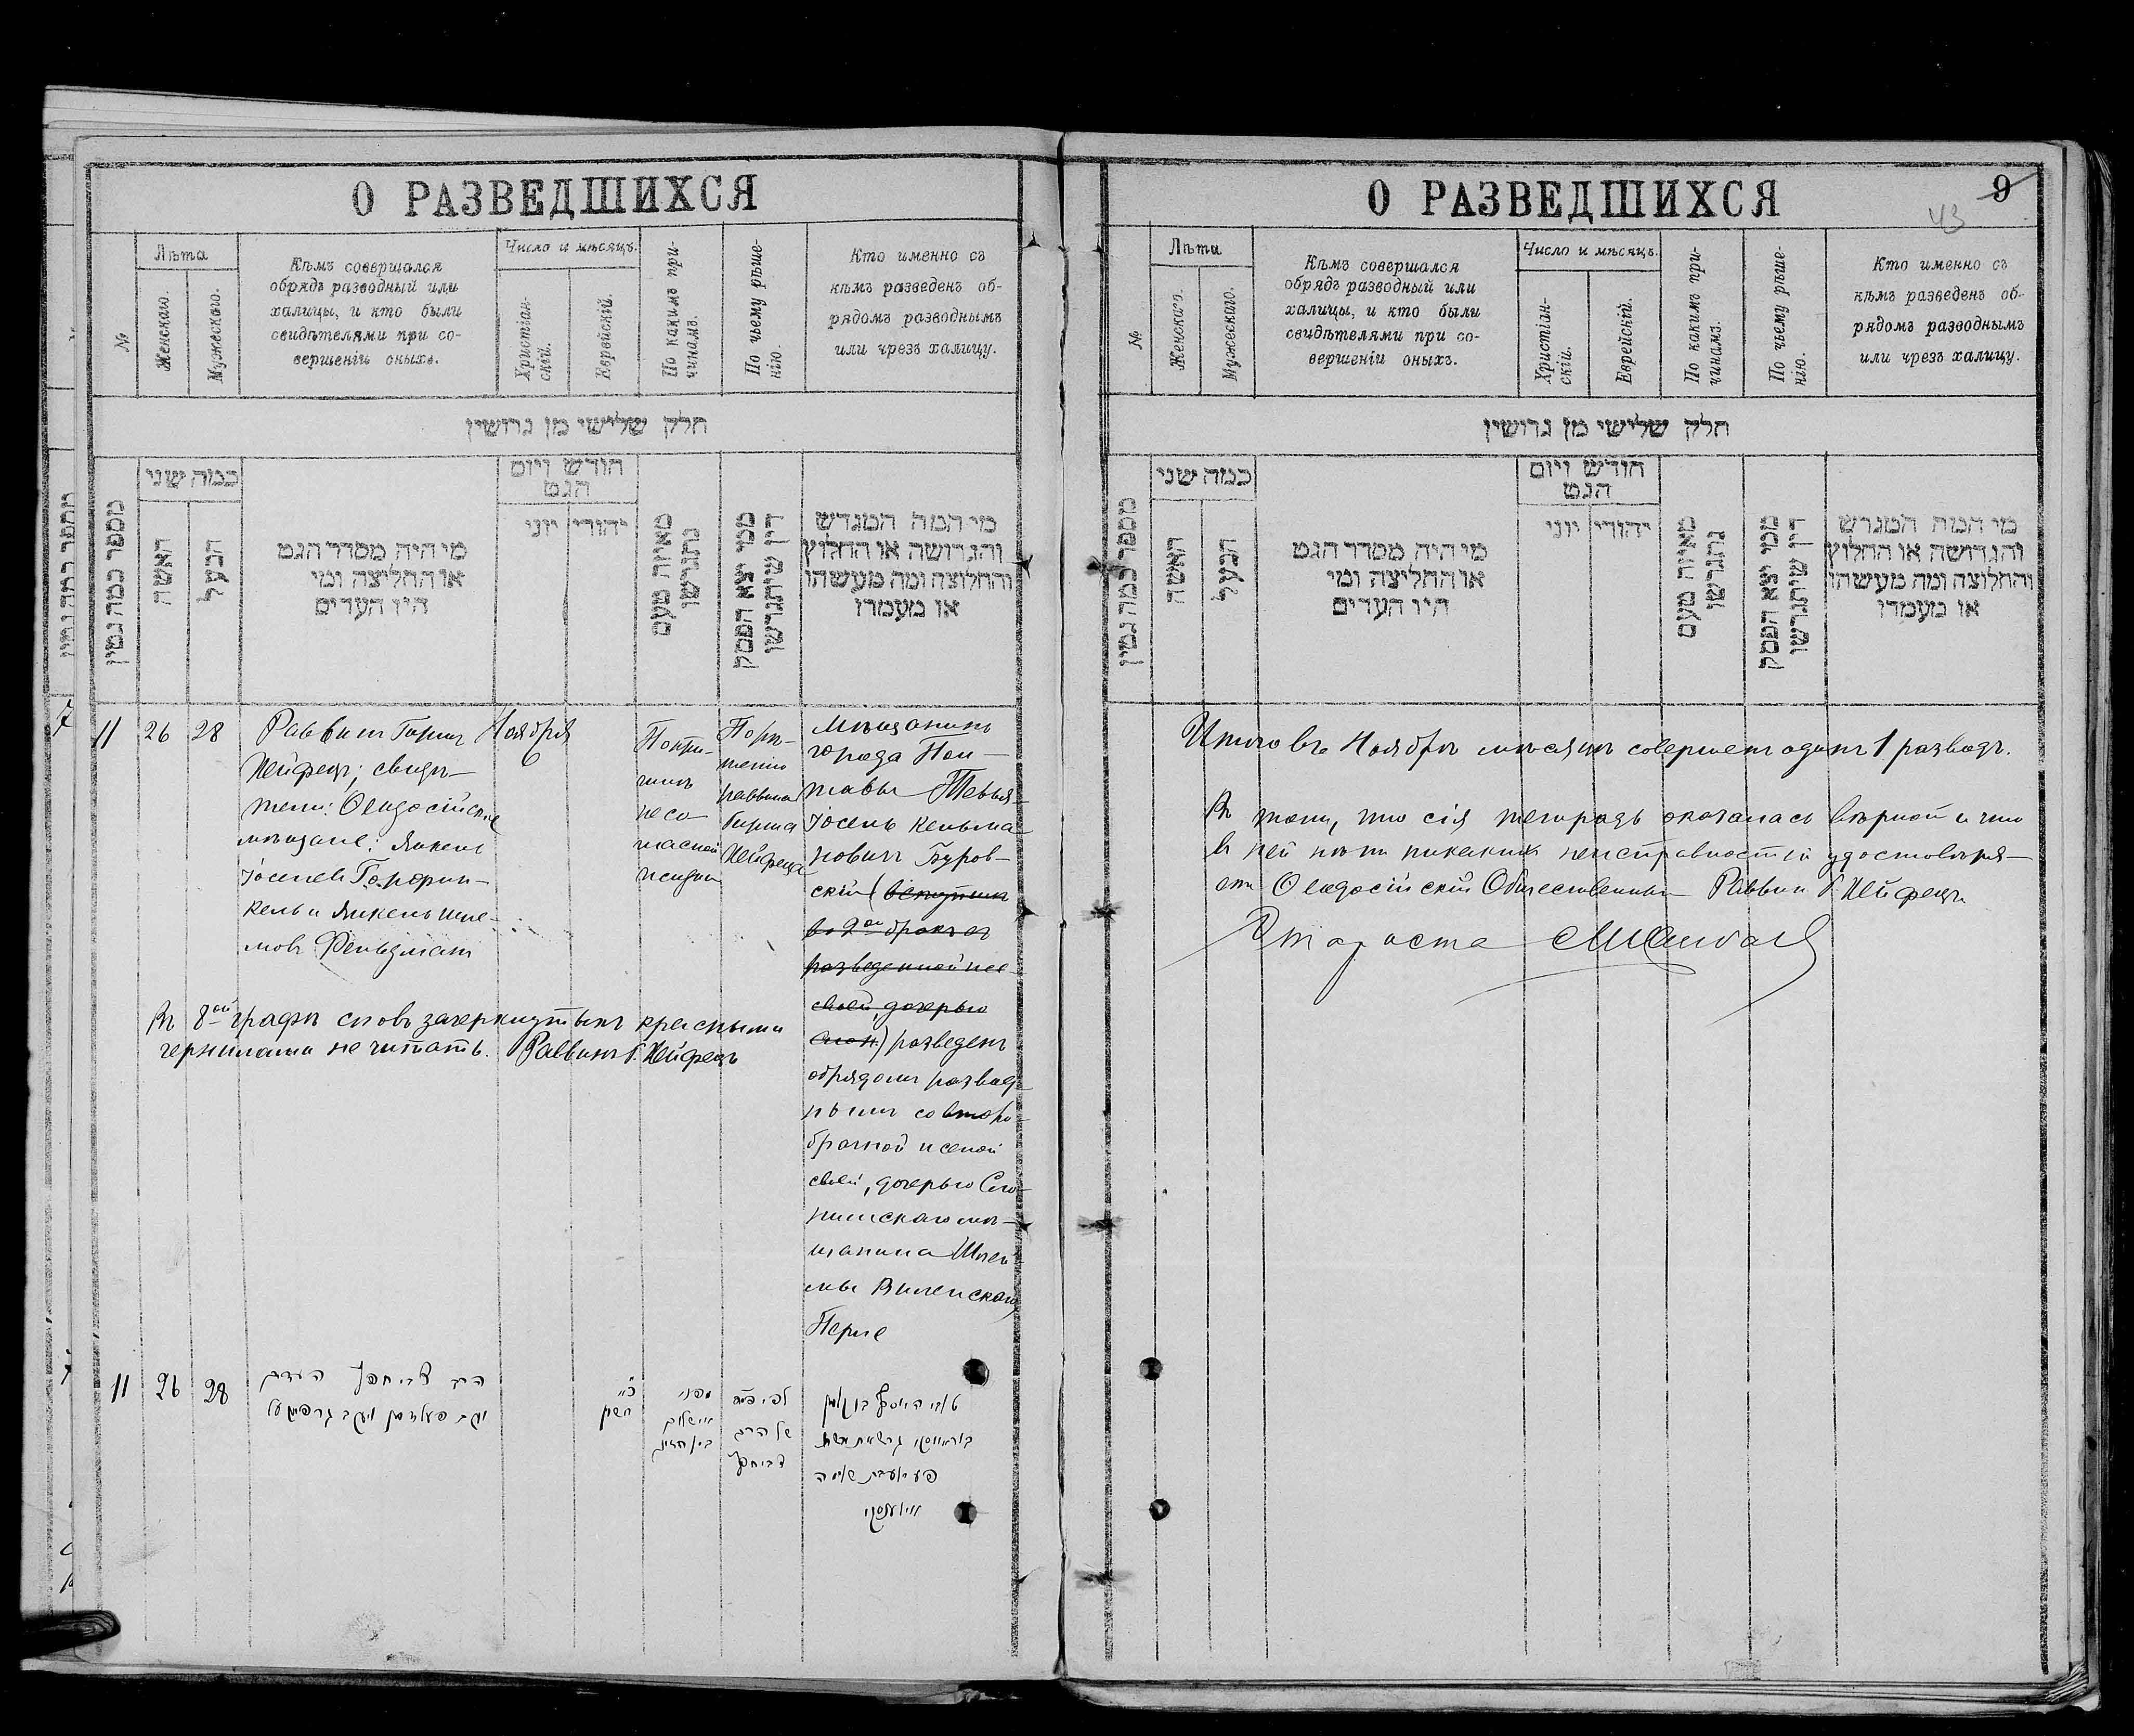 О РАЗВЕДШИХСЯ
№
Лѣта
Женскаго.
Мужескаго.
Кѣмъ совершался
обрядъ разводный или
халицы, и кто были
свидѣтелями при со-
вершеніи оныхъ.
Число и мѣсяцъ.
Христіан-
скій.
Еврейскій.
По какимъ при-
чинамъ.
По чьему рѣше-
нію.
Кто именно съ
кѣмъ разведенъ об-
рядомъ разводнымъ
или чрезъ халицу.
חלק שלישי מן גרושין
מספר כמה גטין
כמה שני
האשה
הבעל
מי היה מסדר הגט
או החליצה ומי
היו העדים
חודש ויום
הגט
יהודי
יוני
מאיזה טעם
נתגרשו
ממי יצא הפסק
דין שיתגרשו
מי המה המגרש
והגרושה או החלוץ
והחלוצה ומה מעשהו
או מעמדו
11
26
28
Раввинъ Гиршъ
Хейфецъ; свидѣ-
тели: Ѳеодосійскіе
мѣщане: Янкель
Іоселевъ
и Янкель Шле-
мовъ Фельдманъ
Ноября
6
По при-
чинѣ
несо-
гласной
жизни
По рѣ-
шенію
раввина
Гирша
Хейфеца
Мѣщанинъ
города Пол-
тавы Тевья-
Іосель Кельма-
новичъ Буров-
скій (вступилъ
во 2ой бракъ съ
разведенной же-
своей, дочерью
) разведенъ
обрядомъ развод-
нымъ со второ-
брачной женой
своей, дочерью Сло-
нимскаго мѣ-
щанина Шлей-
мы Виленскаго,
Перле
Въ 8ой графѣ словъ зачеркнутыхъ красными
чернилами не читать. Раввинъ Г. Хейфецъ
11
26
28
הרב צבי חפץ העדים
יעקב פעלדמן ויעקב
כ״ו
חשון
מפני
אי שלום
ביניהם
לפי
של הרב
צבי חפץ
טובי יוסף בן
בוראווסקי
פערל בת שלמה
ווילענסקי
О РАЗВЕДШИХСЯ
9
43
№
Лѣта
Женскаго.
Мужескаго.
Кѣмъ совершался
обрядъ разводный или
халицы, и кто были
свидѣтелями при со-
вершеніи оныхъ.
Число и мѣсяцъ.
Христіан-
скій.
Еврейскій.
По какимъ при-
чинамъ.
По чьему рѣше-
нію.
Кто именно съ
кѣмъ разведенъ об-
рядомъ разводнымъ
или чрезъ халицу.
חלק שלישי מן גרושין
מספר כמה גטין
כמה שני
האשה
הבעל
מי היה מסדר הגט
או החליצה ומי
היו העדים
חודש ויום
הגט
יהודי
יוני
מאיזה טעם
נתגרשו
ממי יצא הפסק
דין שיתגרשו
מי המה המגרש
והגרושה או החלוץ
והחלוצה ומה מעשהו
או מעמדו
Итого въ Ноябрѣ мѣсяцѣ совершенъ одинъ 1 разводъ.
Въ томъ, что сія тетрадь оказалась вѣрной и что
въ ней нѣтъ никакихъ неисправностей удостовѣря-
етъ Ѳеодосійскій Общественный Раввинъ Г. Хейфецъ
Староста